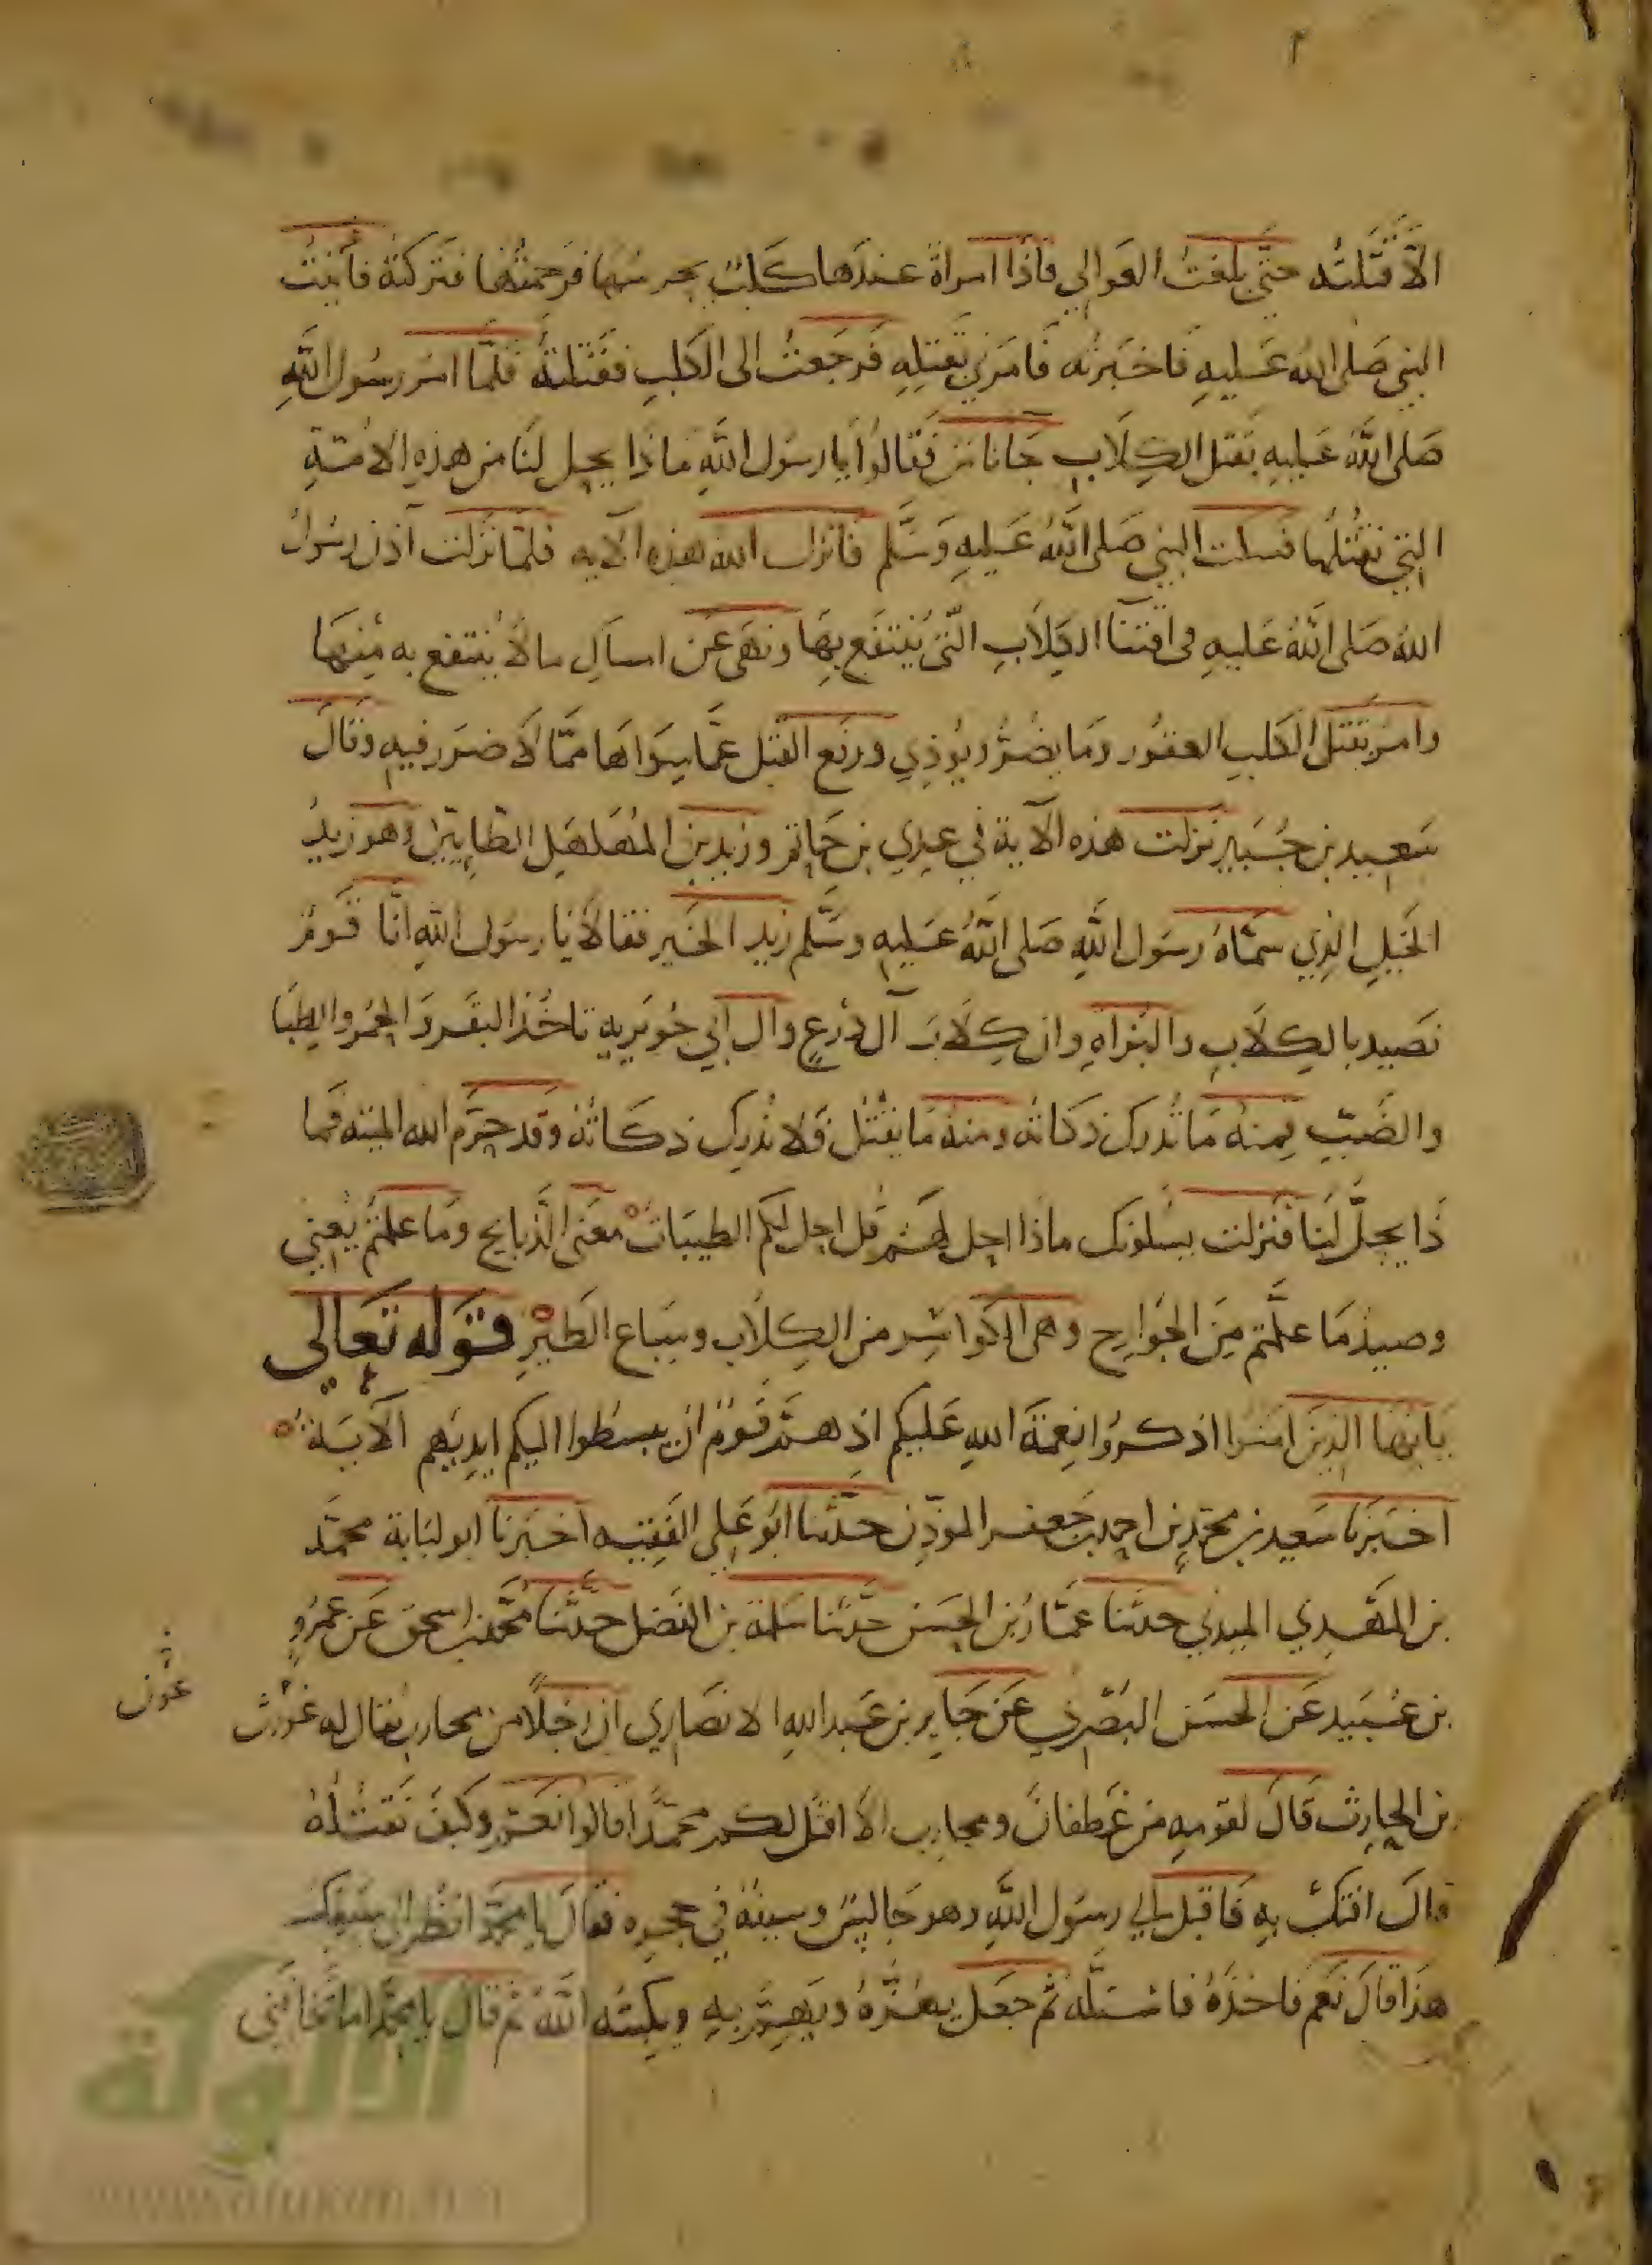 الا قتلته حتى بلغت العوالي فاذا امراة عندها كلب يحرسها فرحمتها فتركته فأتيت
النبي صلى الله عليه فاخبرته فامرني بقتله فرجعت الى الكلب فقتلته فلما امر رسول الله
صلى الله عليه بقتل الكلاب جاناس فقالوا يا رسول الله ماذا يحل لنا من هذه الامة
التي نقتلها فسكت النبي صلى الله عليه وسلم فانزل الله هذه الآيه فلما نزلت آذن رسول
الله صلى الله عليه فى اقتنا الكلاب التي يُنتفع بها ونهى عن امساك ما لا يُنتفع به منها
وامر بقتل الكلب العقور وما يضر ويؤذي ورفع القتل عما سواها مما لا ضرر فيه وقال
سعيد بن جبير نزلت هذه الآية في عدي بن حاتم وزيد بن المهلهل الطايين وهو زيد
الخيل الذي سماه رسول الله صلى الله عليه وسلم زيد الخير فقالا يا رسول الله انا قوم
نصيد بالكلاب والبزاه وان كلاب آل ذرع وآل أبي حويريه تاخذ البقر والحمر والظبا
والضب فمنه ما ندرك ذكاته ومنه ما يقتل فلا ندرك ذكاته وقد حرم الله الميته فما
ذا يحل لنا فنزلت يسلونك ماذا احل لهم قل احل لكم الطيبات معنى الذبايح وما علمتم يعني
وصيد ما علمتم من الجوارح وهى الكواسر من الكلاب وسباع الطير قوله تعالى
يا ايها الذين امنوا اذكروا نعمة الله عليكم اذ هم قوم ان يبسطوا اليكم ايديهم الآية
اخبرنا سعيد بن محمد بن احمد بن جعفر الموذن حدثنا ابو علي الفقيه اخبرنا ابو لبابة محمد
بن المهدي الميدني حدثنا عمار بن الحسن حدثنا سلمة بن الفضل حدثنا محمد بن اسحق عن عمرو
بن عبيد عن الحسن البصري عن جابر بن عبد الله الانصاري ان رجلا من محارب يقال له غورث
بن الحارث قال لقومه من غطفان ومحارب الا اقتل لكم محمدا قالوا نعم وكيف تقتله
قال افتك به فاقبل الي رسول الله وهو جالس وسيفه في حجره فقال يا محمد انظر الى سيفك
هذا قال نعم فاخذه فاستله ثم جعل يهزه ويهم به ويكبته الله ثم قال يا محمد اما تخافني
الألوكة